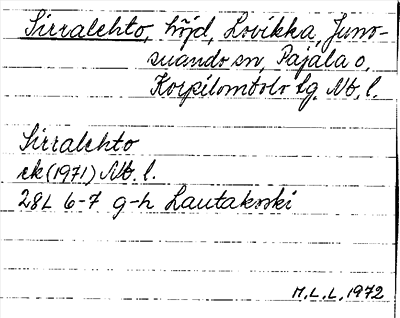 Sirralehto, höjd, Lovikka, Juno-
suando sn, Pajala o,
Korpilombolo tg. Nb. l.
Sirralehto
ek (1971) Nb. l.
28L 6-7 g-h Lautakoski
M.L.L. 1972